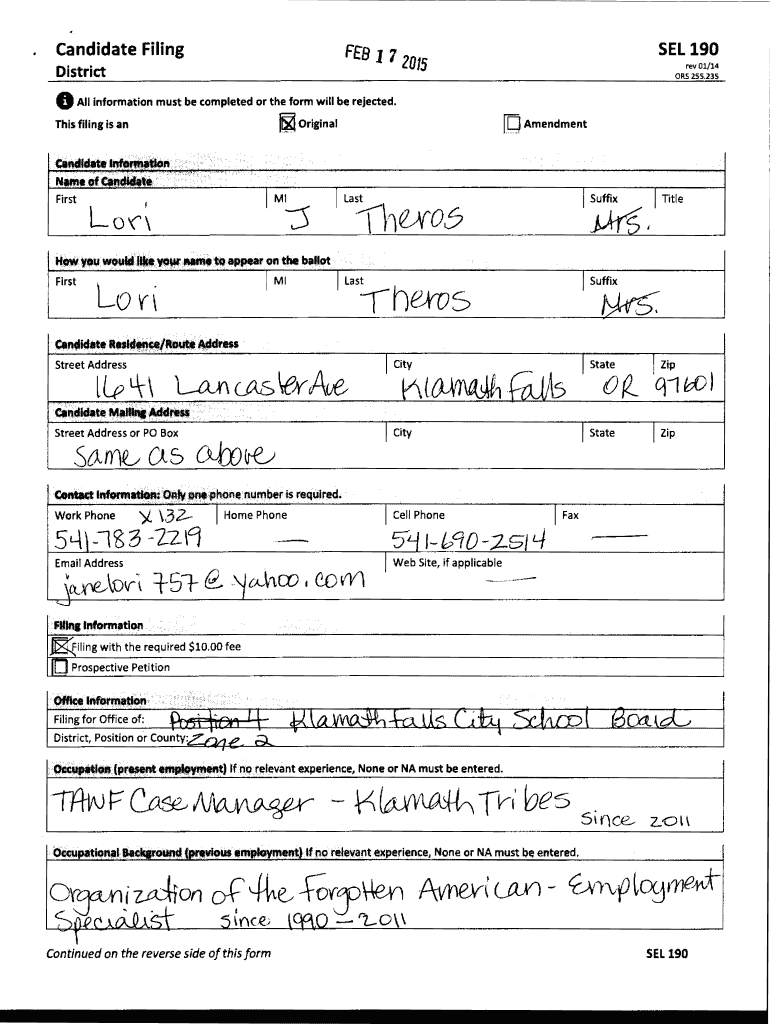 Candidate Filing FEB 17 2015 SEL 190
District rev 01/14
ORS 255.235
All information must be completed or the form will be rejected.
This filing is an Original Amendment
Candidate Information
Name of Candidate
First MI Last Suffix Title
Lori J Theros Mrs.
How you would like your name to appear on the ballot
First MI Last Suffix
Lori Theros Mrs.
Candidate Residence/Route Address
Street Address City State Zip
1641 Lancaster Ave Klamath Falls OR 97601
Candidate Mailing Address
Street Address or PO Box City State Zip
Same as above
Contact Information: Only one phone number is required.
Work Phone x132 Home Phone Cell Phone Fax
541-783-2219 — 541-690-2514 —
Email Address Web Site, if applicable
janelori757@yahoo.com —
Filing Information
Filing with the required $10.00 fee
Prospective Petition
Office Information
Filing for Office of: Position 4 Klamath Falls City School Board
District, Position or County: Zone 2
Occupation (present employment) If no relevant experience, None or NA must be entered.
TANF Case Manager - Klamath Tribes
since 2011
Occupational Background (previous employment) If no relevant experience, None or NA must be entered.
Organization of the Forgotten American - Employment
Specialist since 1990-2011
Continued on the reverse side of this form SEL 190